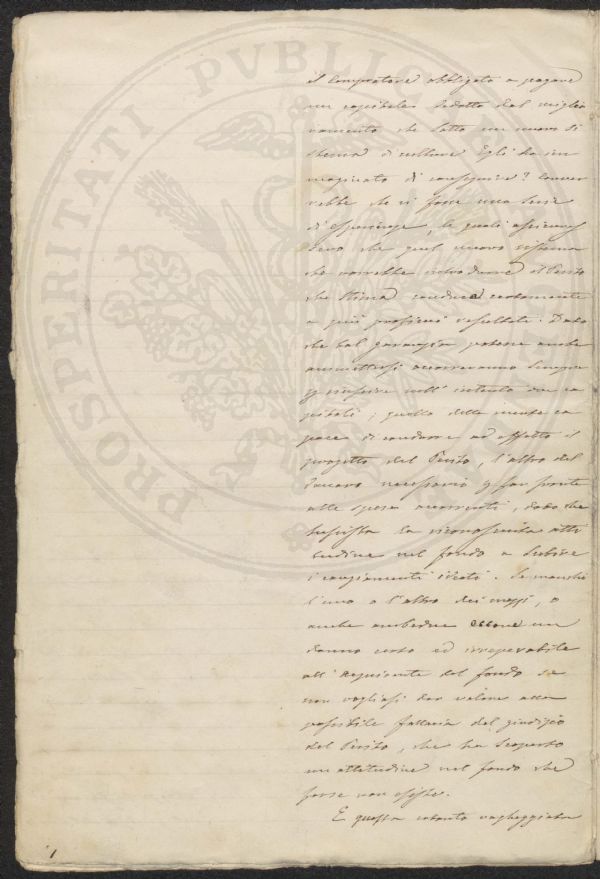 il Compratore obbligato a pagare
un capitale dedotto dal miglio
ramento che sotto un nuovo Si
stema di colture Egli ha im
maginato di conseguire? Conver
rebbe che vi fosse una serie
di esperienze, le quali
sero che quel nuovo sistema
che vorrebbe introdurre il Perito
che stima conduca certamente
a più proficui resultati. Dato
che tal garanzia potesse anche
ammettersi occorreranno sempre
per riuscire nell' intento due ca
pitali; quello della mente ca
pace di condurre ad effetto il
progetto del Perito, l'altro del
danaro necessario per far fronte
alle spese occorrenti, dato che
sussista la riconosciuta atti
tudine nel fondo a subire
i cangiamenti ideati. Se manchi
l'uno o l'altro dei mezzi, o
anche ambedue eccone un
danno certo ed irreparabile
all' Acquirente del fondo se
non vogliasi dar valore alla
possibile fallacia del giudizio
del Perito, che ha scoperto
un attitudine nel fondo che
forse non esiste.
E questa cotanto vagheggiata
PROSPERITATI PUBLICAE